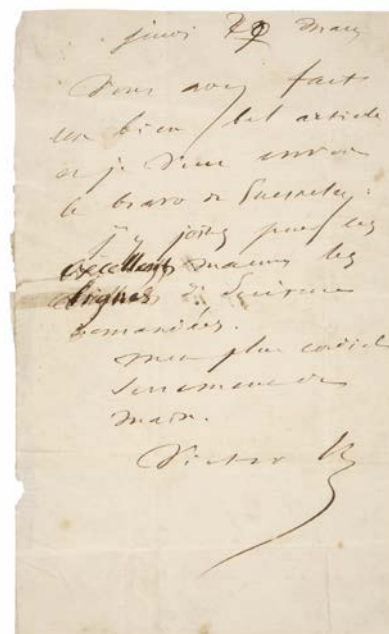 jeudi mars
Vous avez fait
un bien bel article
et je vous envoie
le bravo de Guernesey.
J'y joins pour les
excellents marins les
lignes
demandées.
Mon plus cordial
serrement de
main.
Victor H